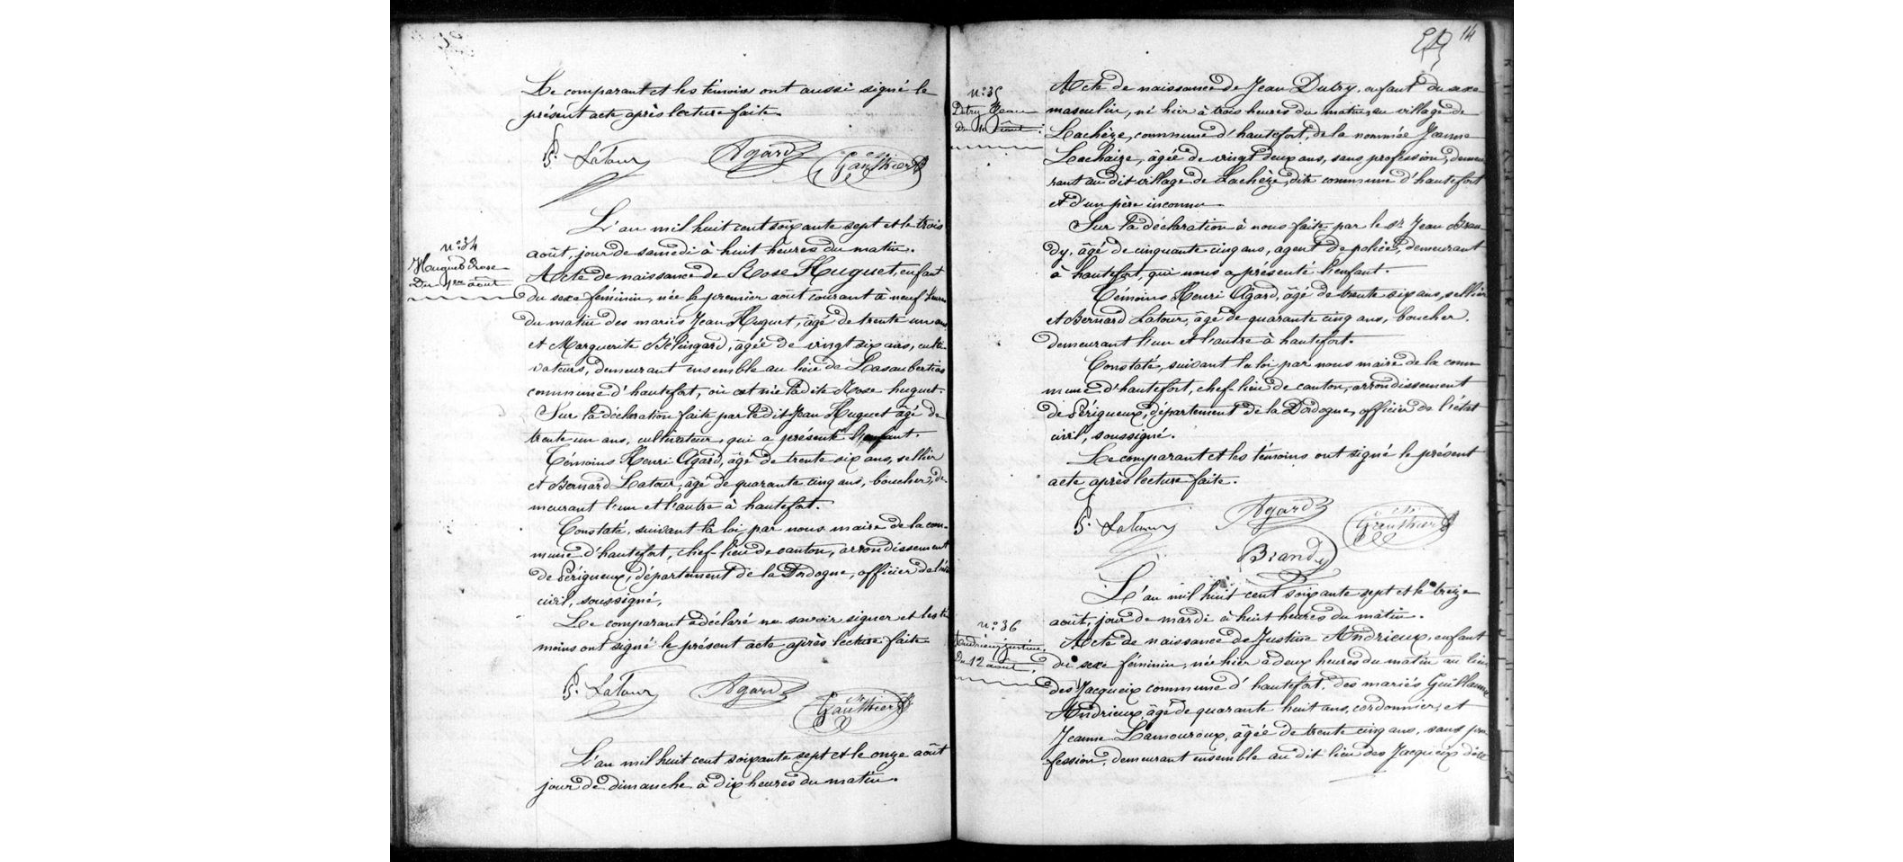 Le comparant et les témoins ont aussi signé le
présent acte après lecture faite.
B. LaTour Agard Gauthier
n° 34
Huguet Rose
Du 1er août
L'an mil huit cent soixante sept et le trois
août, jour de samedi à huit heures du matin.
Acte de naissance de Rose Huguet, enfant
du sexe féminin, née le premier août courant à neuf heures
du matin des mariés Jean Huguet, âgé de trente un ans
et Marguerite Bélingard, âgée de vingt six ans, culti-
vateurs, demeurant ensemble au lieu de Lasauberties
commune d'hautefort, où est née ladite Rose huguet.
Sur la déclaration faite par ledit Jean Huguet âgé de
trente un ans, cultivateur, qui a présenté l'enfant.
Témoins Henri Agard, âgé de trente six ans, sellier
et Bernard Latour, âgé de quarante cinq ans, boucher, de-
meurant l'un et l'autre à hautefort.
Constaté, suivant la loi, par nous maire de la com-
mune d'hautefort, chef-lieu de canton, arrondissement
de Périgueux, département de la Dordogne, officier de l'état
civil, soussigné.
Le comparant a déclaré ne savoir signer et les té-
moins ont signé le présent acte après lecture faite.
B. LaTour Agard Gauthier
L'an mil huit cent soixante sept et le onze août
jour de dimanche à dix heures du matin.
14
n° 35
Dutry Jean
Du 10 août
Acte de naissance de Jean Dutry, enfant du sexe
masculin, né hier à trois heures du matin, au village de
Lachèze, commune d'hautefort, de la nommée Jeanne
Lachaize, âgée de vingt deux ans, sans profession, demeu-
rant au dit village de Lachèze, dite commune d'hautefort
et d'un père inconnu.
Sur la déclaration à nous faite par le sr Jean Bran-
dy, âgé de cinquante cinq ans, agent de police, demeurant
à hautefort, qui nous a présenté l'enfant.
Témoins Henri Agard, âgé de trente six ans, sellier
et Bernard Latour, âgé de quarante cinq ans, boucher.
demeurant l'un et l'autre à hautefort.
Constaté, suivant la loi, par nous maire de la com-
mune d'hautefort, chef lieu de canton, arrondissement
de Périgueux, département de la Dordogne, officier de l'état
civil, soussigné.
Le comparant et les témoins ont signé le présent
acte après lecture faite.
B. LaTour Agard Gauthier
Brandy
n° 36
Andrieux Justine,
Du 12 août
L'an mil huit cent soixante sept et le treize
août, jour de mardi à huit heures du matin.
Acte de naissance de Justine Andrieux, enfant
du sexe féminin, née hier à deux heures du matin au lieu
des Jacqueix commune d'hautefort, des mariés Guillaume
Andrieux, âgé de quarante huit ans, cordonnier, et
Jeanne Lamouroux, âgée de trente cinq ans, sans pro-
fession, demeurant ensemble au dit lieu des Jacqueix dite